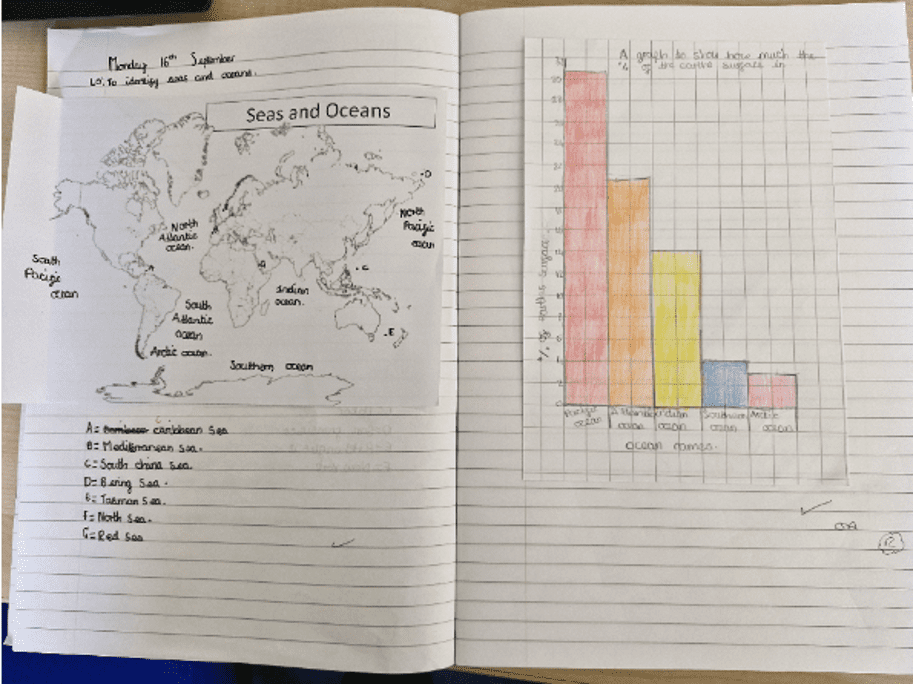 Monday 16th September
LO: To identify seas and oceans.
Seas and Oceans
D
North
Pacific
ocean
North
Atlantic
ocean.
South
Pacific
ocean
C
Indian
ocean.
South
Atlantic
ocean
E
Arctic ocean.
Southern ocean
A= caribbean Sea
B= Mediterranean sea.
C= South china sea.
D= Bering sea.
E= Tasman Sea.
F= North Sea.
G= Red Sea
A graph to show how much the
% of the earths surface in
% of earths surface.
Pacific
ocean
Atlantic
ocean
Indian
ocean
Southern
ocean
Arctic
ocean
ocean names.